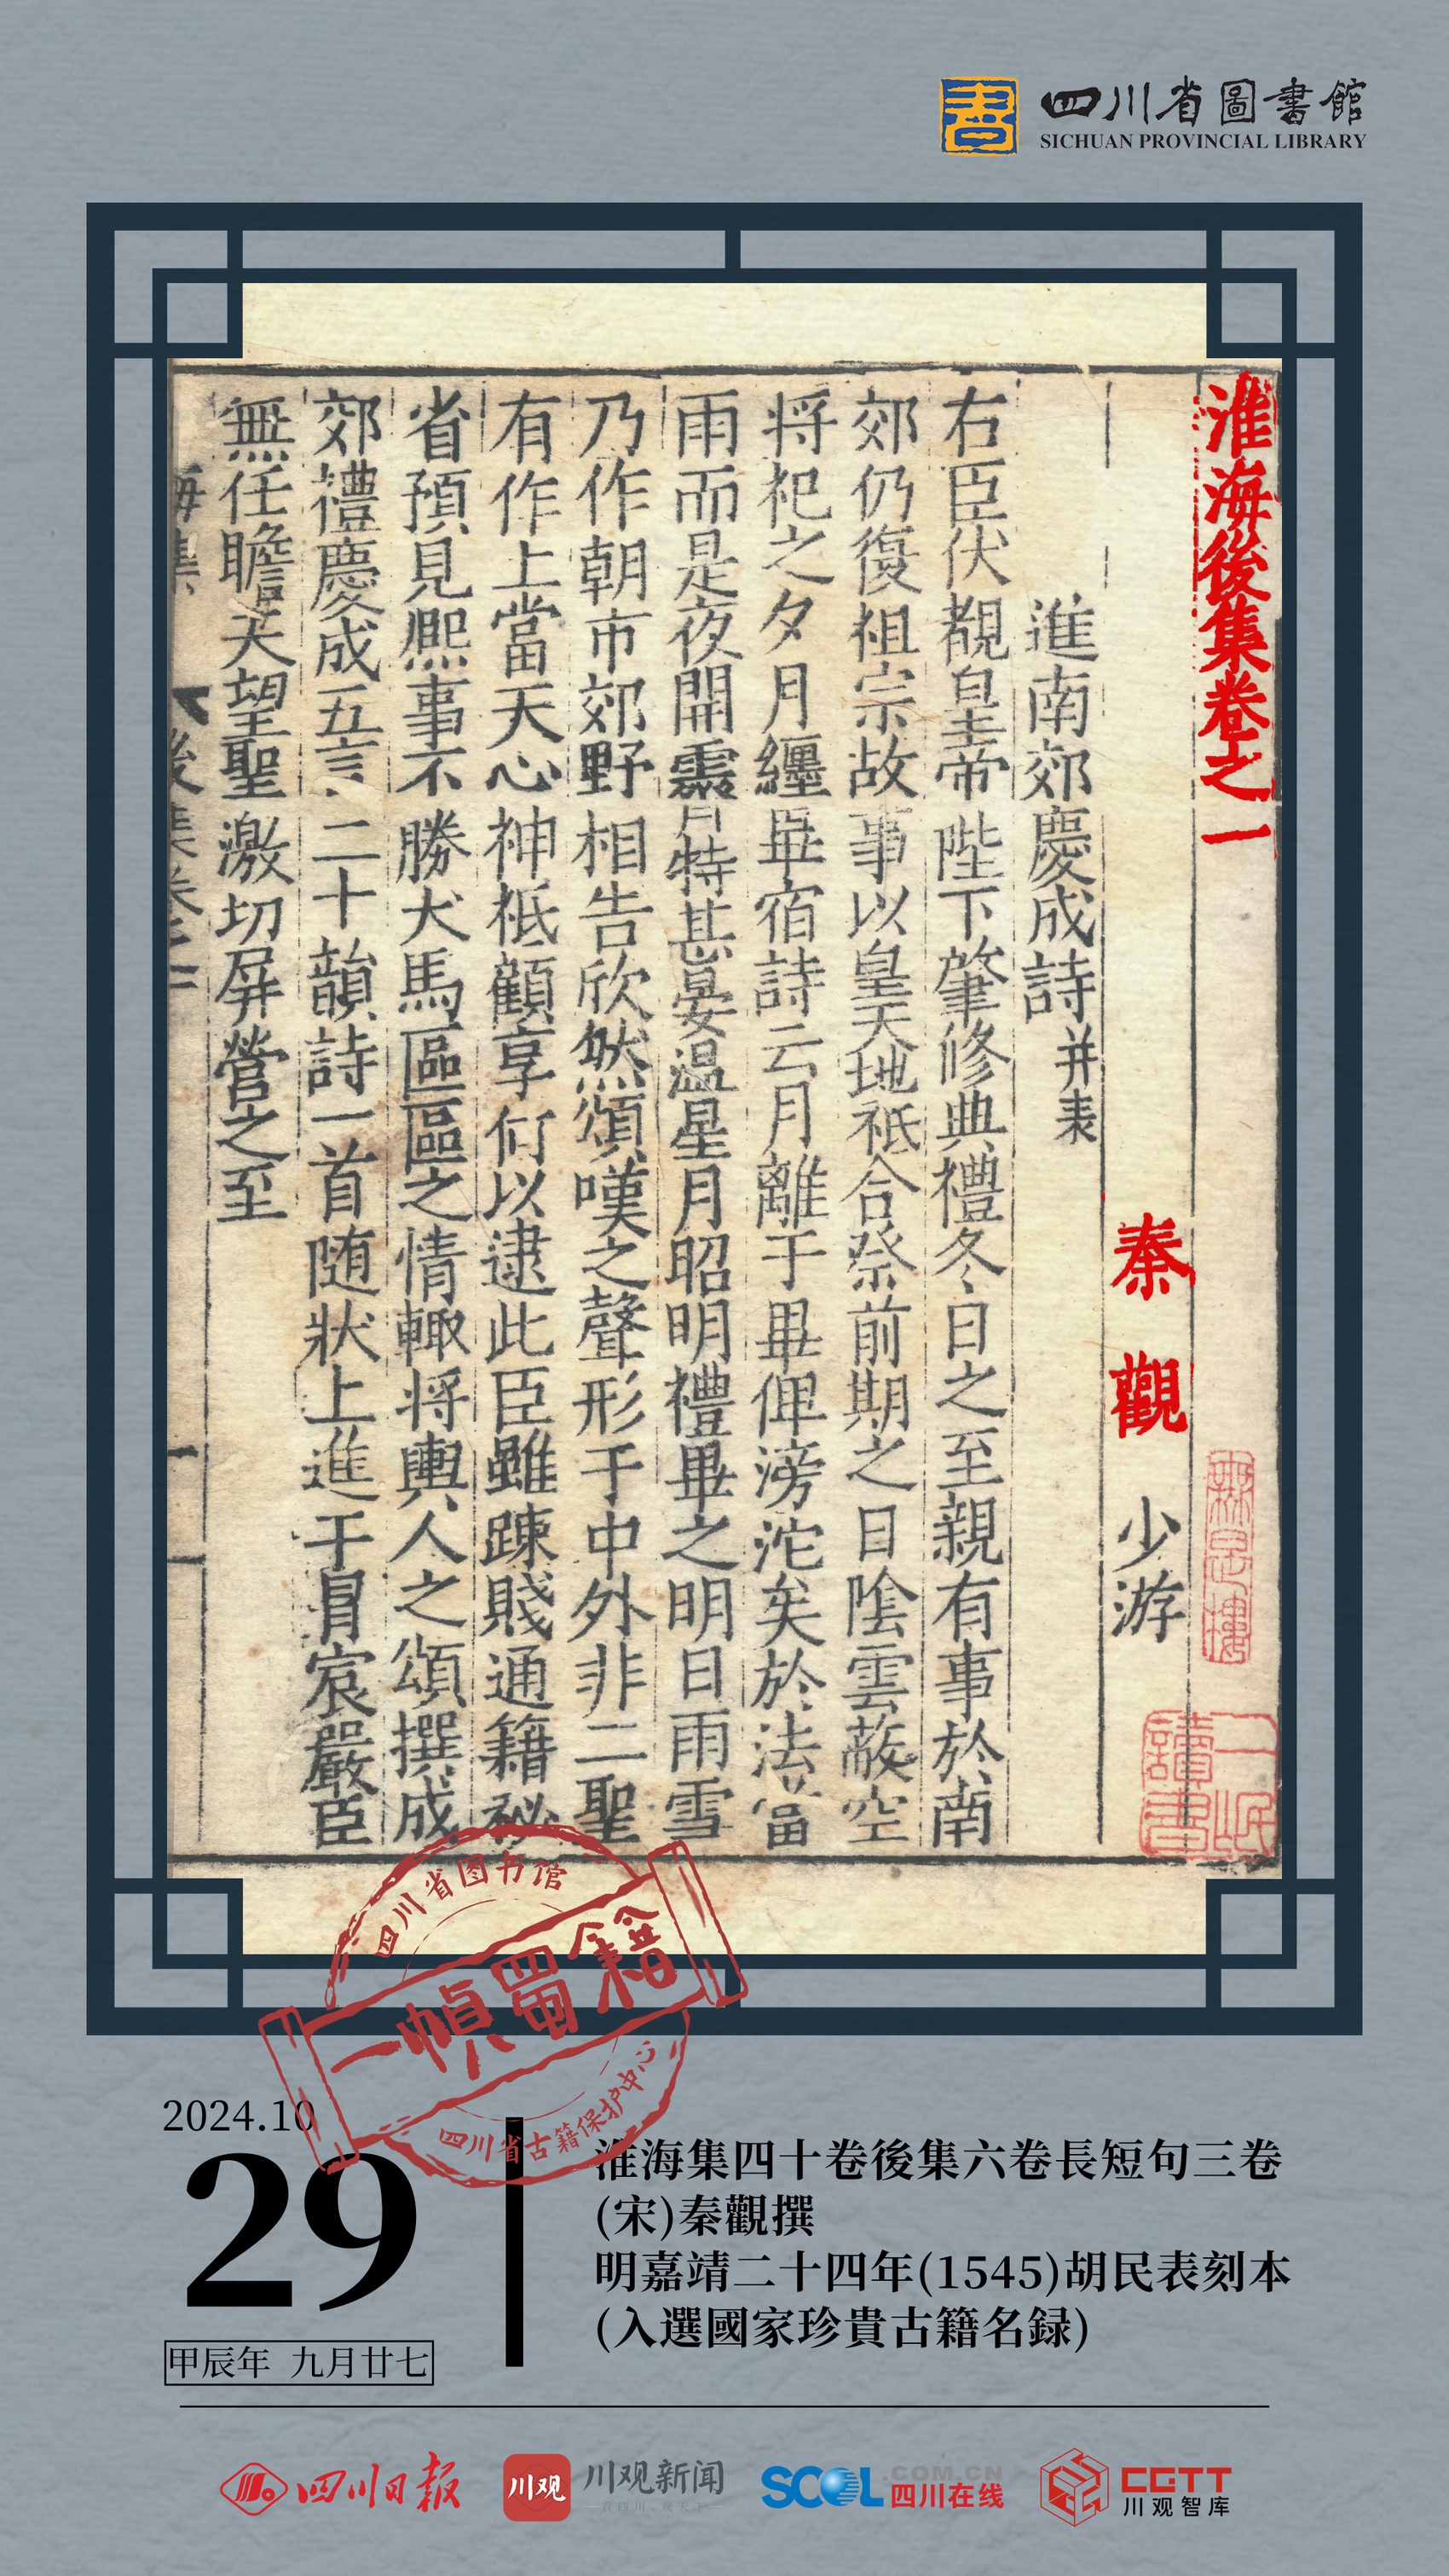 四川省圖書館
SICHUAN PROVINCIAL LIBRARY
淮海後集卷之一
秦觀 少游
進南郊慶成詩并表
右臣伏覩皇帝陛下肇修典禮冬日之至親有事於南
郊仍復祖宗故事以皇天地祇合祭前期之日陰雲蔽空
将祀之夕月纏畢宿詩云月離于畢俾滂沱矣於法當
雨而是夜開霽特甚晏温星月昭明禮畢之明日雨雪
乃作朝市郊野相告欣然頌嘆之聲形于中外非二聖
有作上當天心神祇顧享何以逮此臣雖踈賤通籍祕
省預見熙事不勝犬馬區區之情輙将輿人之頌撰成
郊禮慶成五言二十韻詩一首随狀上進干冒宸嚴臣
無任瞻天望聖激切屏營之至
海集 後集卷之一
讀書
四川省图书馆
一幀蜀籍
四川省古籍保护中心
2024.10
29
甲辰年 九月廿七
淮海集四十卷後集六卷長短句三卷
(宋)秦觀撰
明嘉靖二十四年(1545)胡民表刻本
(入選國家珍貴古籍名録)
四川日报
川观 川观新闻
SCOL.COM.CN 四川在线
CGTT 川观智库